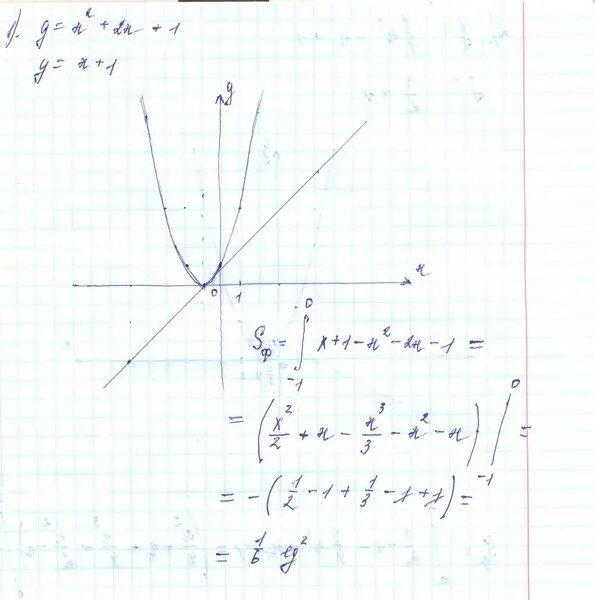 б). y = x² + 2x + 1
y = x + 1
y
x
0 1
S_ф = ∫₋₁⁰ x + 1 - x² - 2x - 1 =
= (x²/2 + x - x³/3 - x² - x) |₋₁⁰ =
= - (1/2 - 1 + 1/3 - 1 + 1) =
= 1/6 ед²